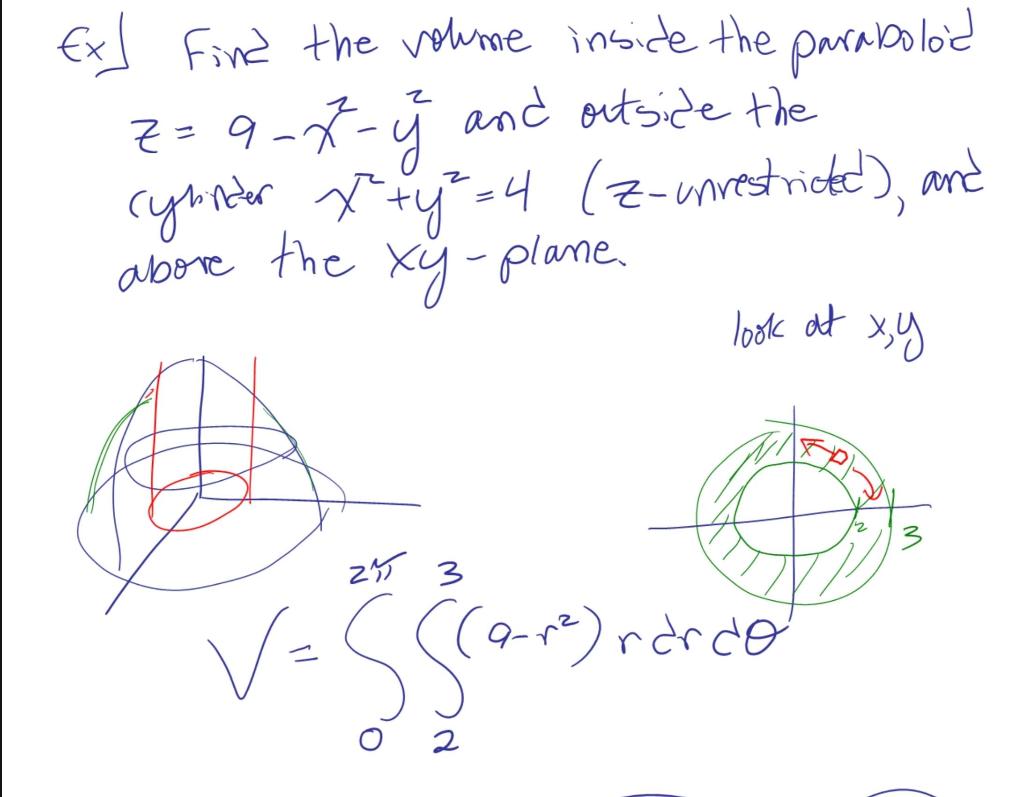 Ex] Find the volume inside the paraboloid
z = 9 - x² - y² and outside the
cylinder x² + y² = 4 (z-unrestricted), and
above the xy-plane.
look at x,y
D
2
3
V = ∫₀^2π ∫₂³ (9-r²) r dr dθ